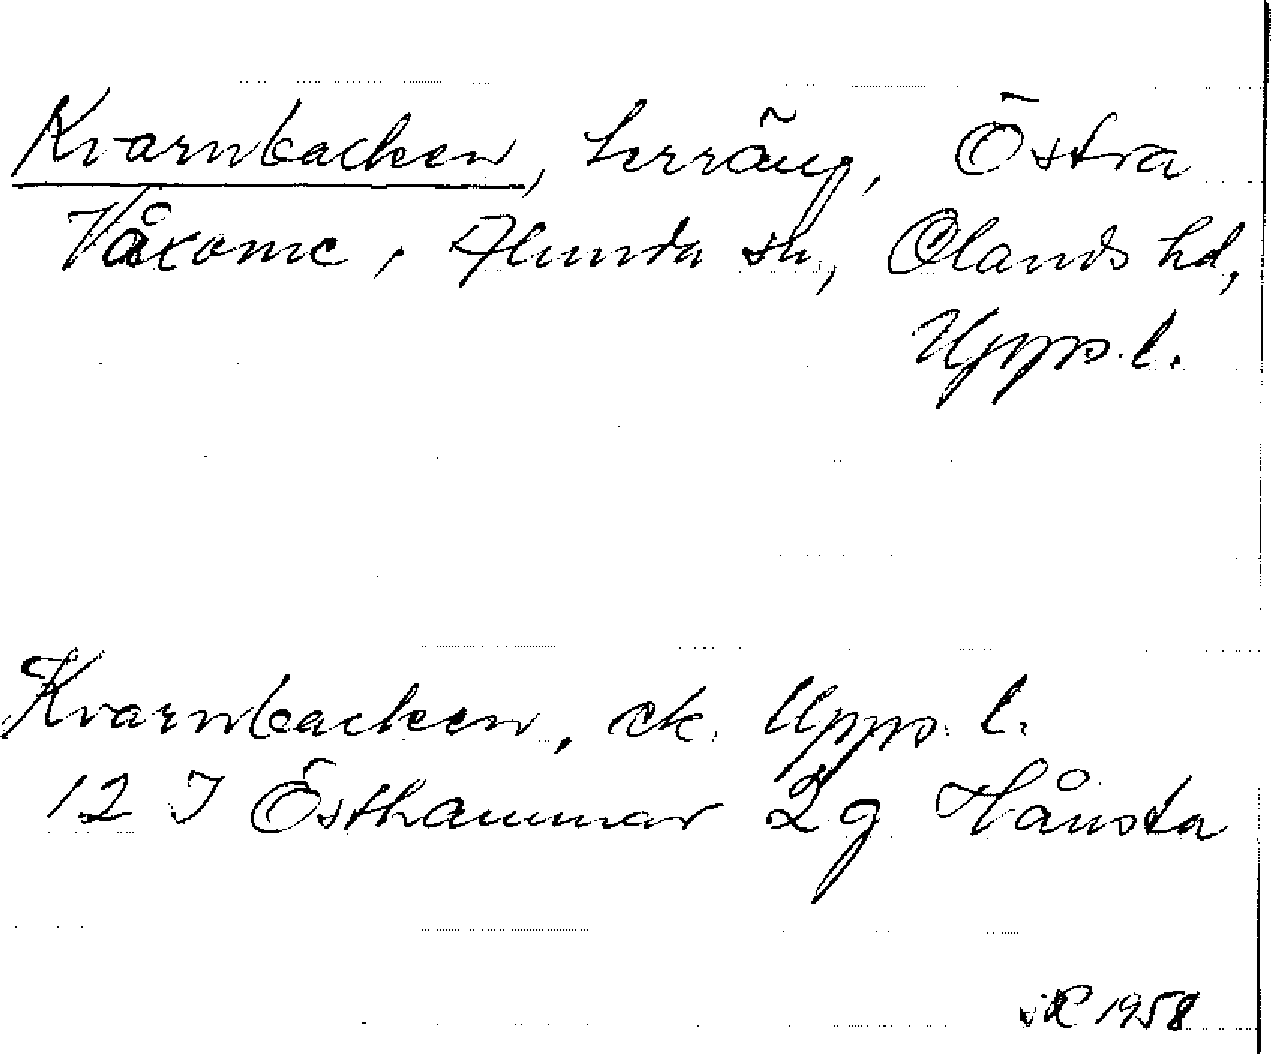 Kvarnbacken, terräng, Östra
Våxome, Alunda sn, Olands hd,
Upps. l.
Kvarnbacken, ek. Upps. l.
12 I Östhammar 2 g Hånsta
1958